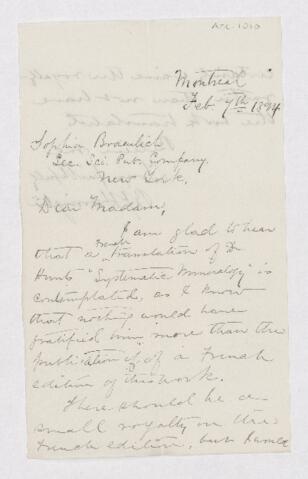 Montreal
Feb. 7th 1894
Sophia Braeunlich
Sec. Sci. Pub. Company.
New York.
Dear Madam,
I am glad to hear
French
that a translation of Dr
Hunts "Systematic Mineralogy" is
contemplated, as I know
that nothing would have
gratified him more than the
publication of of a French
edition of this work.
There should be a
small royalty on the
French edition, but